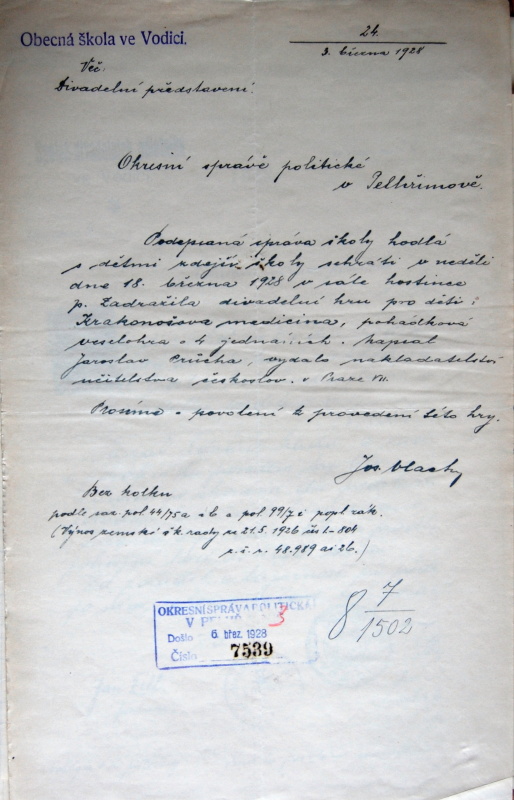 Obecná škola ve Vodici.
24.
3. března 1928
Věc:
Divadelní představení.
Okresní správě politické
v Pelhřimově.
Podepsaná správa školy hodlá
s dětmi zdejší školy sehráti v neděli
dne 18. března 1928 v sále hostince
p. Zadražila divadelní hru pro děti:
Krakonošova medicina, pohádková
veselohra o 4 jednáních. Napsal
Jaroslav Průcha, vydalo nakladatelství
učitelstva českoslov. v Praze VII.
Prosíme o povolení k provedení této hry.
Jos. Vlach
Bez kolku
podle saz. pol. 44/75a i b a pol. 99/7 i popl. zák.
(Výnos zemské šk. rady ze 21.5. 1926 čís. I-804
z. š. r. 48.989 ai 26.)
OKRESNÍ SPRÁVA POLITICKÁ
V
3
Došlo 6. břez. 1928
Číslo 7539
8 7/1502